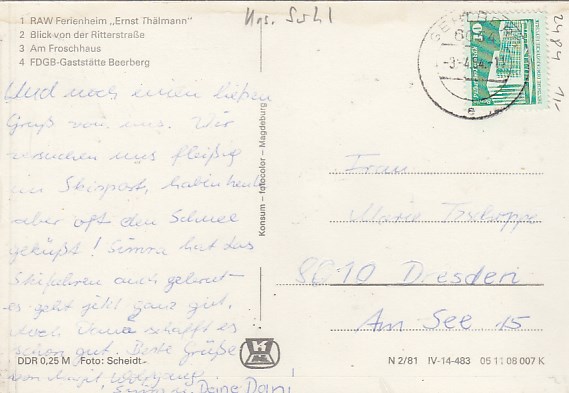 1 RAW Ferienheim „Ernst Thälmann"
2 Blick von der Ritterstraße
3 Am Froschhaus
4 FDGB-Gaststätte Beerberg
Hgs. Suhl
2484 1,-
6034
-3-4.84-1
e
10
Und noch einen lieben
Gruß von uns. Wir
versuchen uns fleißig
im Skisport, haben heute
aber oft den Schnee
geküßt! Simra hat das
Skifahren auch gelernt -
es geht jetzt ganz gut.
Auch schafft es
schon gut. Beste Grüße
von
Deine Dani
Konsum – fotocolor – Magdeburg
Frau
Marie
8010 Dresden
Am See 15
DDR 0,25 M Foto: Scheidt
KM
N 2/81 IV-14-483 05 11 08 007 K